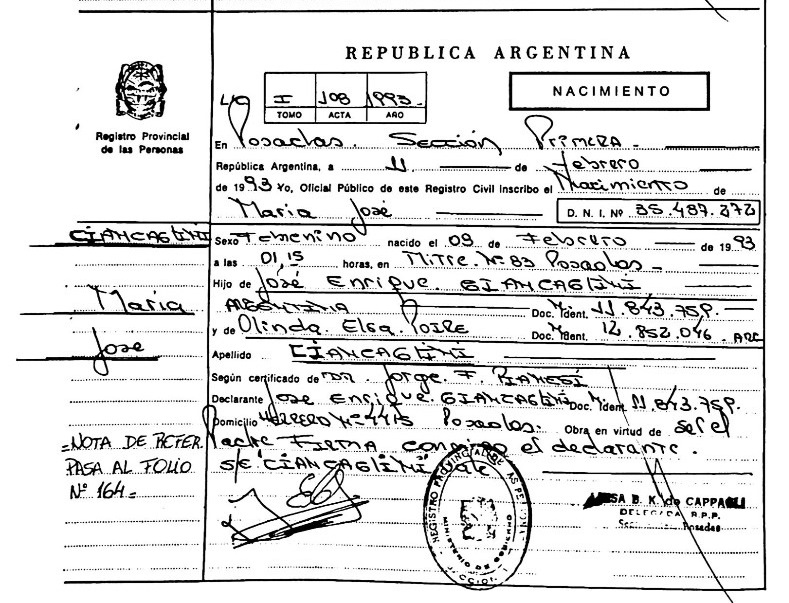 REPUBLICA ARGENTINA
NACIMIENTO
49 I 108 1993
TOMO ACTA AÑO
Registro Provincial
de las Personas
En Posadas. Sección Primera
República Argentina, a 11 de Febrero
de 1993 Yo, Oficial Público de este Registro Civil inscribo el Nacimiento de
María José D. N. I. Nº 35.487.272
CIANCAGLINI
María
José
Sexo Femenino nacido el 09 de Febrero de 1993
a las 01,15 horas, en Mitre Nº 83 Posadas
Hijo de José Enrique CIANCAGLINI
ARGENTINA Doc. Ident. M. 11.843.759.
y de Olinda Elsa Doc. Ident. 12.852.046. ARG
Apellido CIANCAGLINI
Según certificado de DR. Jorge F.
Declarante José Enrique CIANCAGLINI Doc. Ident. M. 11.843.759.
Domicilio Nº 4415 Posadas. Obra en virtud de ser el
Padre FIRMA conmigo el declarante.
CIANCAGLINI
=NOTA DE REFER.
PASA AL FOLIO
Nº 164=
REGISTRO PROVINCIAL DE LAS PERSONAS
B. K. de CAPPAGLI
DELEGADA R.P.P.
Posadas